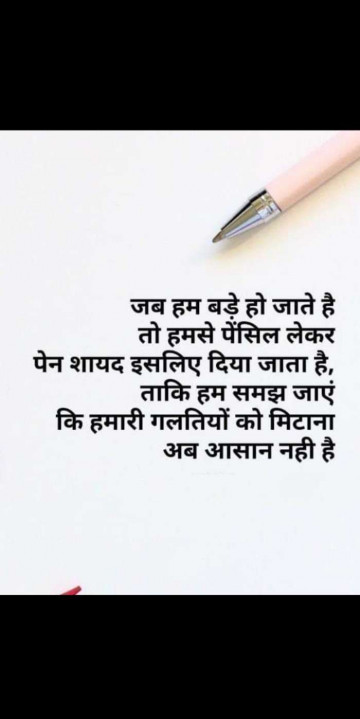 जब हम बड़े हो जाते है
तो हमसे पेंसिल लेकर
पेन शायद इसलिए दिया जाता है,
ताकि हम समझ जाएं
कि हमारी गलतियों को मिटाना
अब आसान नही है